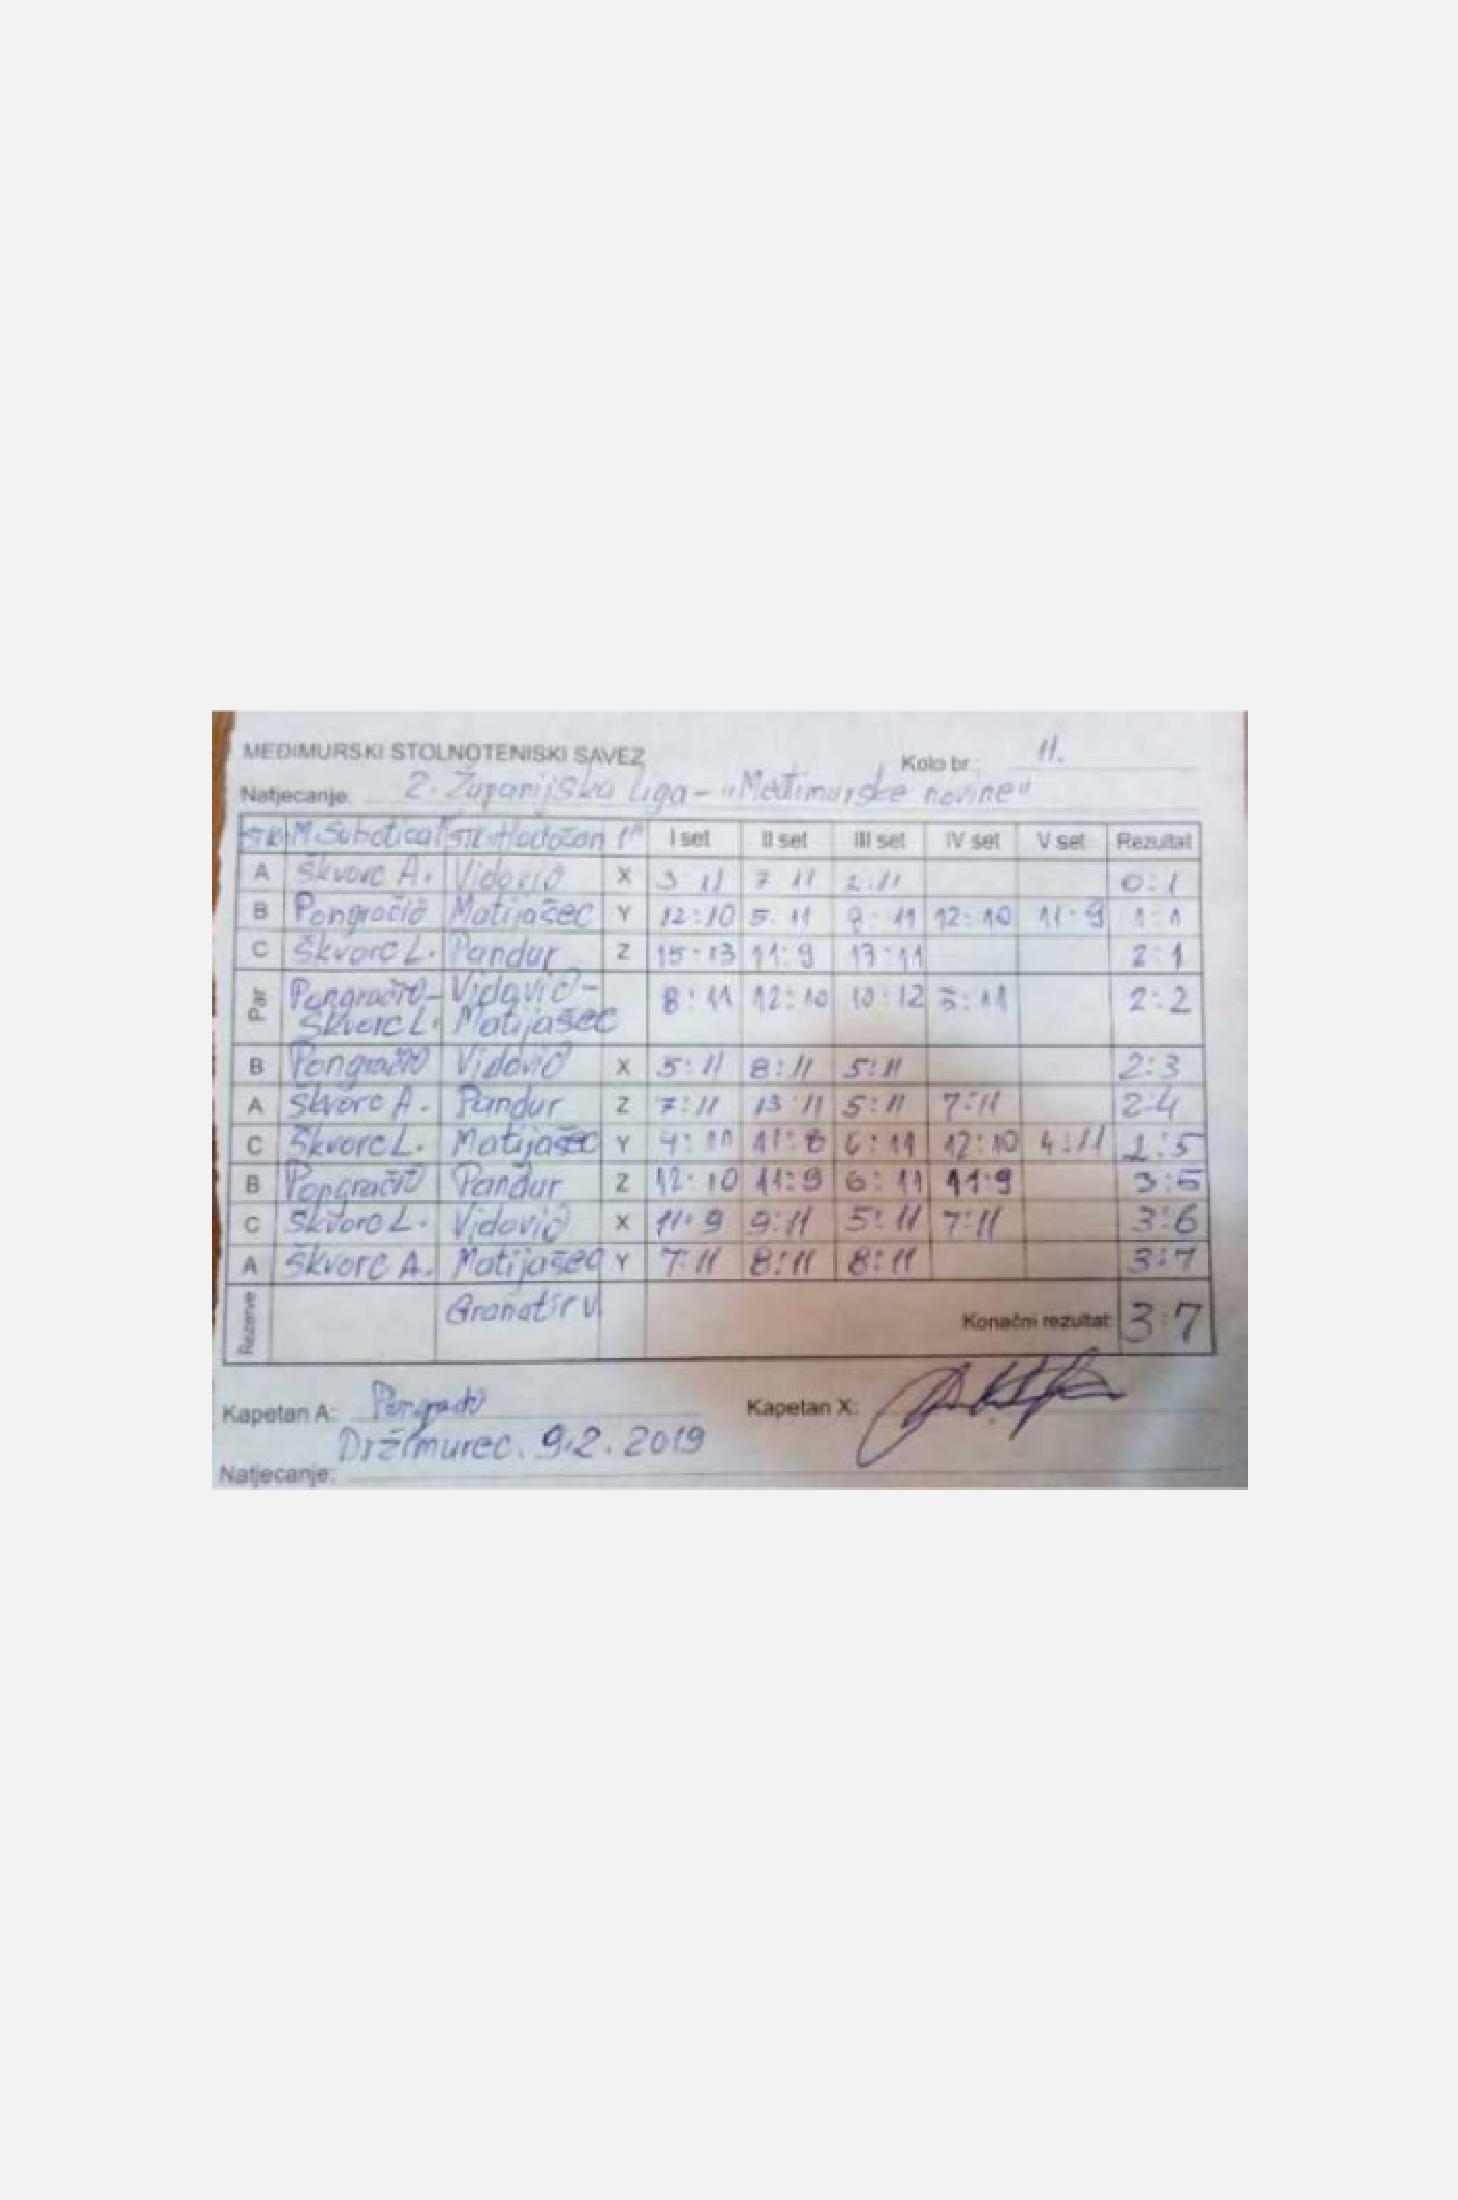 MEĐIMURSKI STOLNOTENISKI SAVEZ Kolo br.: 11.
Natjecanje: 2. Županijska liga - "Međimurske novine"
STK M. Subotica STK Hodošan I set II set III set IV set V set Rezultat
A Škvorc A. Vidović X 3 11 7 11 2:11 0:1
B Pongračić Matijašec Y 12:10 5:11 11 12:10 11:9 1:1
C Škvorc L. Pandur Z 15-13 11:9 13:11 2:1
Par Pongračić- Vidović- 8:11 12:10 10:12 5:11 2:2
Škvorc L. Matijašec
B Pongračić Vidović X 5:11 8:11 5:11 2:3
A Škvorc A. Pandur Z 7:11 13 11 5:11 7:11 2:4
C Škvorc L. Matijašec Y 11:8 6:11 12:10 4:11 2:5
B Pongračić Pandur Z 12:10 11:9 6:11 11:9 3:5
C Škvorc L. Vidović X 11:9 9:11 5:11 7:11 3:6
A Škvorc A. Matijašec Y 7:11 8:11 8:11 3:7
Rezerve Granatir V. Konačni rezultat: 3:7
Kapetan A: Kapetan X:
Držimurec. 9.2.2019
Natjecanje: